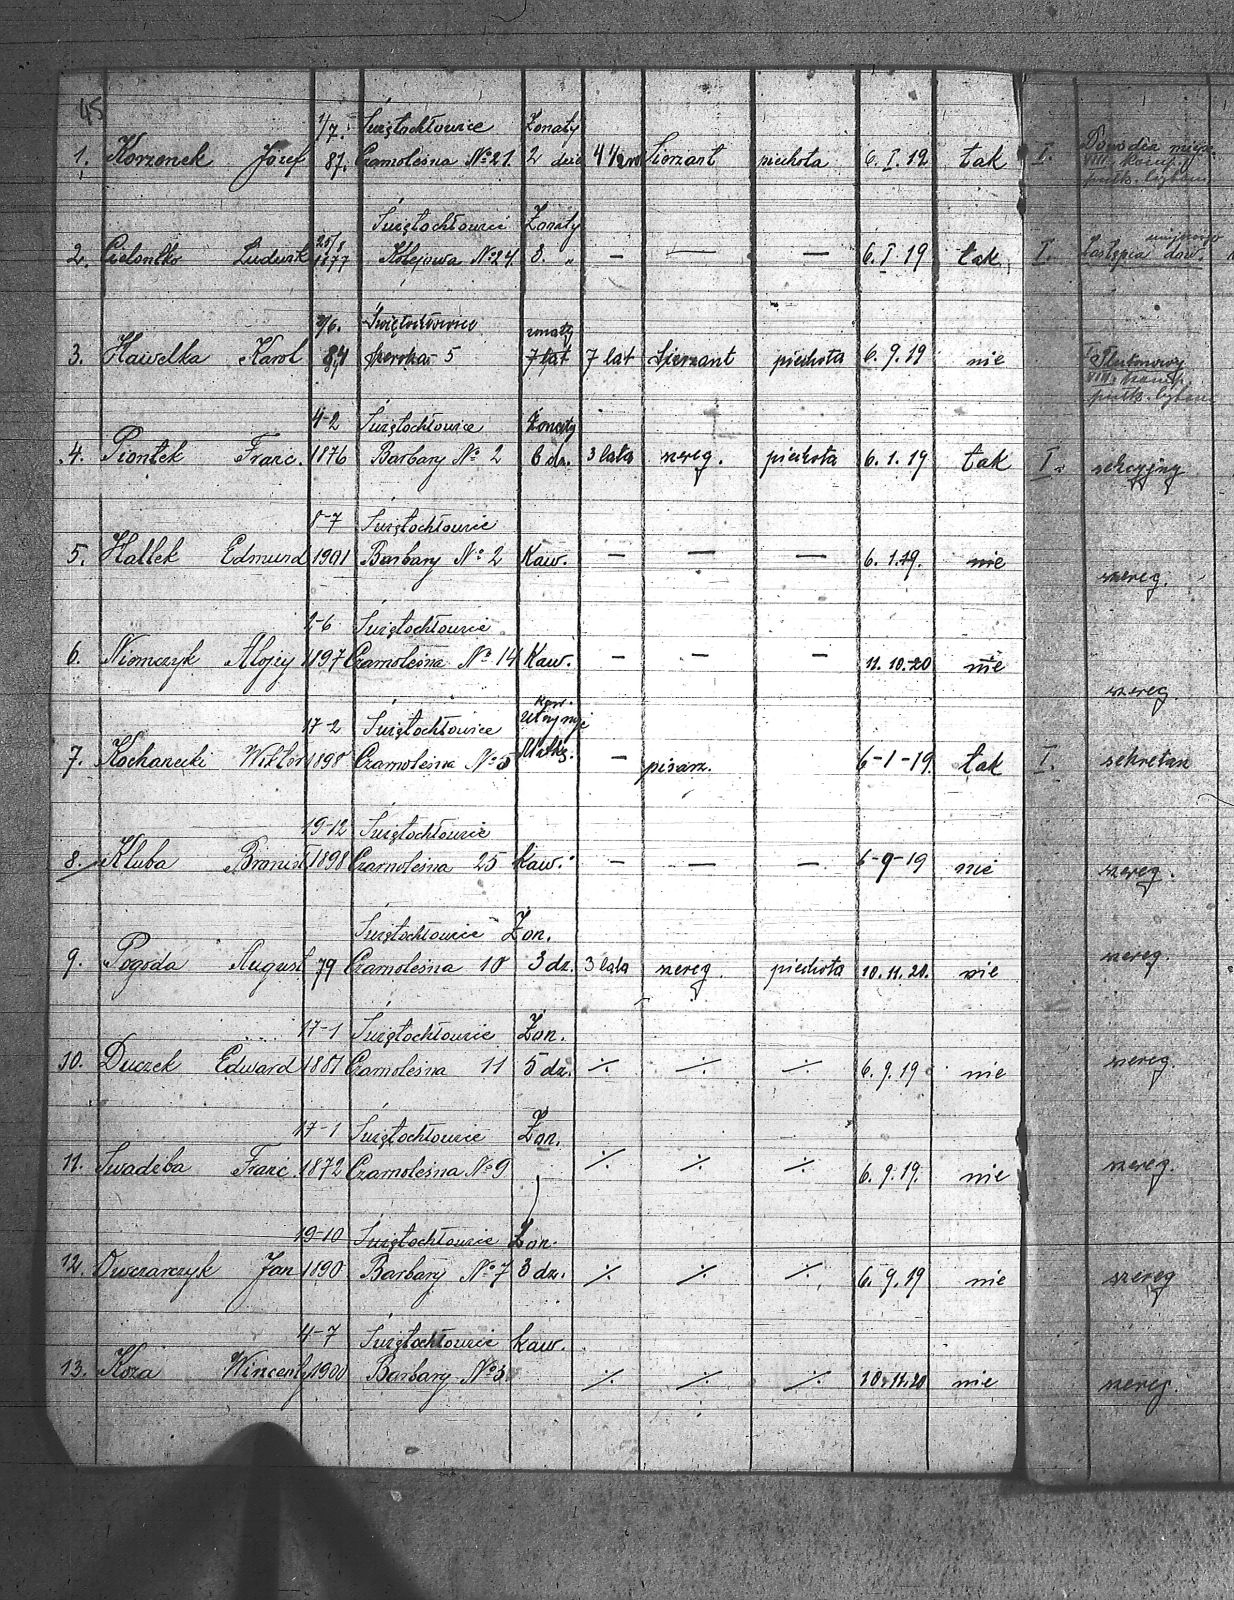 45
1/7. Świętochłowice Żonaty
1. Korzonek Józef 87. Czarnoleśna No 21. 2 dzie 4 1/2 Sierżant piechota 6. I. 19 tak I. Dowódca
VIII. komp.
Świętochłowice Żonaty
2. Ludwik 1877 Kolejowa No 24. 3. „ — — — 6. I. 19 tak I. Zastępca dow.
Świętochłowice żonaty
3. Hawelka Karol 84 5 7 lat 7 lat Sierżant piechota 6. 9. 19 nie Plutonowy
VIII. komp.
4-2 Świętochłowice Żonaty
4. Piontek Franc. 1876 Barbary No 2 6 dz. 3 lata szereg. piechota 6. 1. 19 tak I. sekcyjny
8-7 Świętochłowice
5. Hallek Edmund 1901 Barbary No 2 Kaw. — — — 6. 1. 19. nie szereg.
2-6 Świętochłowice
6. Niemczyk Alojzy 1897 Czarnoleśna No 14 Kaw. — — — 11. 10. 20 nie szereg.
17-2 Świętochłowice kaw. Utrzymuje
7. Kochanecki Wiktor 1898 Czarnoleśna No 5 Matkę. — pisarz. 6-1-19. tak I. sekretarz
19-12 Świętochłowice
8. Kluba Bronisł 1898 Czarnoleśna 25 Kaw. — — — 6-9-19 nie szereg.
Świętochłowice Żon.
9. Pogoda August 79 Czarnoleśna 10 3 dz. 3 lata szereg. piechota 10. 11. 20. nie szereg.
17-1 Świętochłowice Żon.
10. Duczek Edward 1881 Czarnoleśna 11 5 dz. ·/· ·/· ·/· 6. 9. 19 nie szereg.
17-1 Świętochłowice Żon.
11. Swadźba Franc. 1872 Czarnoleśna No 9 ·/· ·/· ·/· 6. 9. 19. nie szereg.
19-10 Świętochłowice Żon.
12. Owczarczyk Jan 1890 Barbary No 7 3 dz. ·/· ·/· ·/· 6. 9. 19 nie szereg
4-7 Świętochłowice kaw.
13. Koza Wincenty 1900 Barbary No 3 ·/· ·/· ·/· 10. 11. 20 nie szereg.